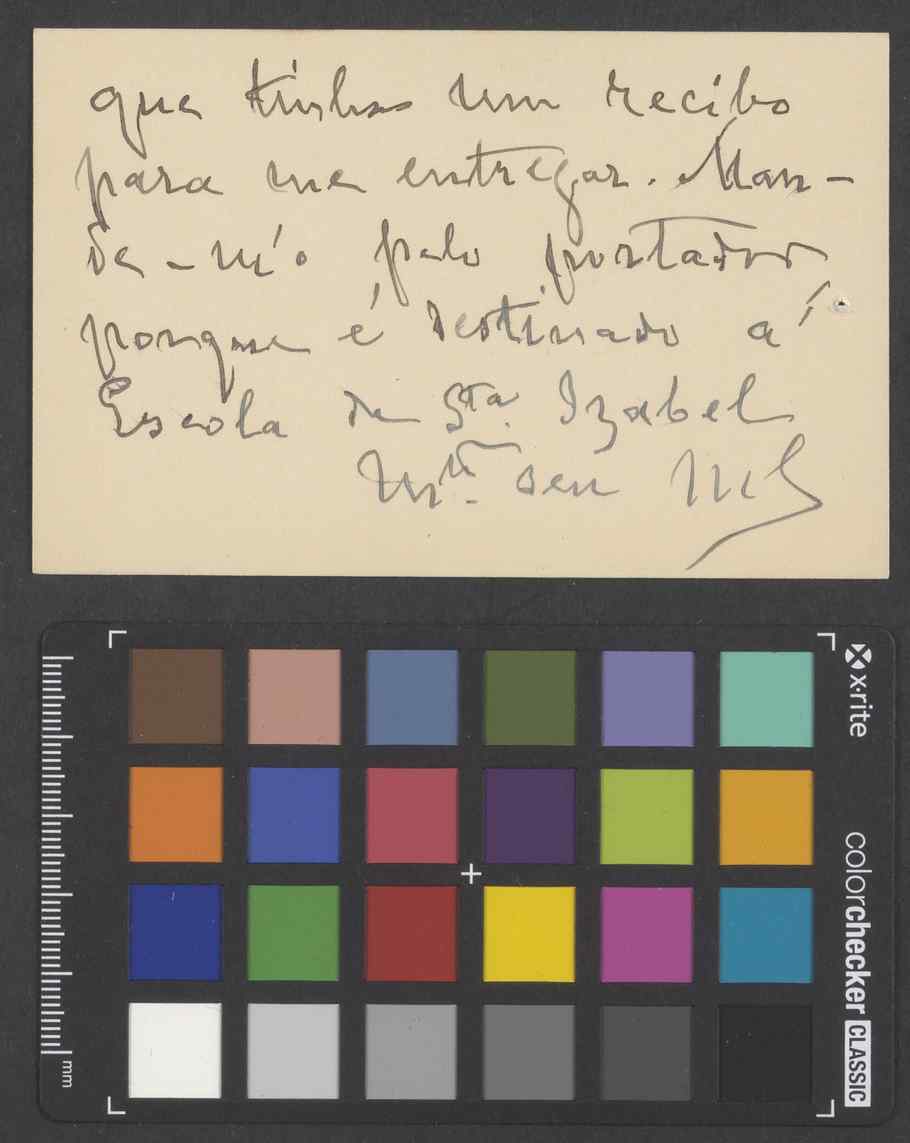 que tinhas um recibo
para me entregar. Man-
da-m'o pelo portador
porque é destinado á
Escola de Sta. Izabel
Mto. seu
mm
x·rite
colorchecker CLASSIC